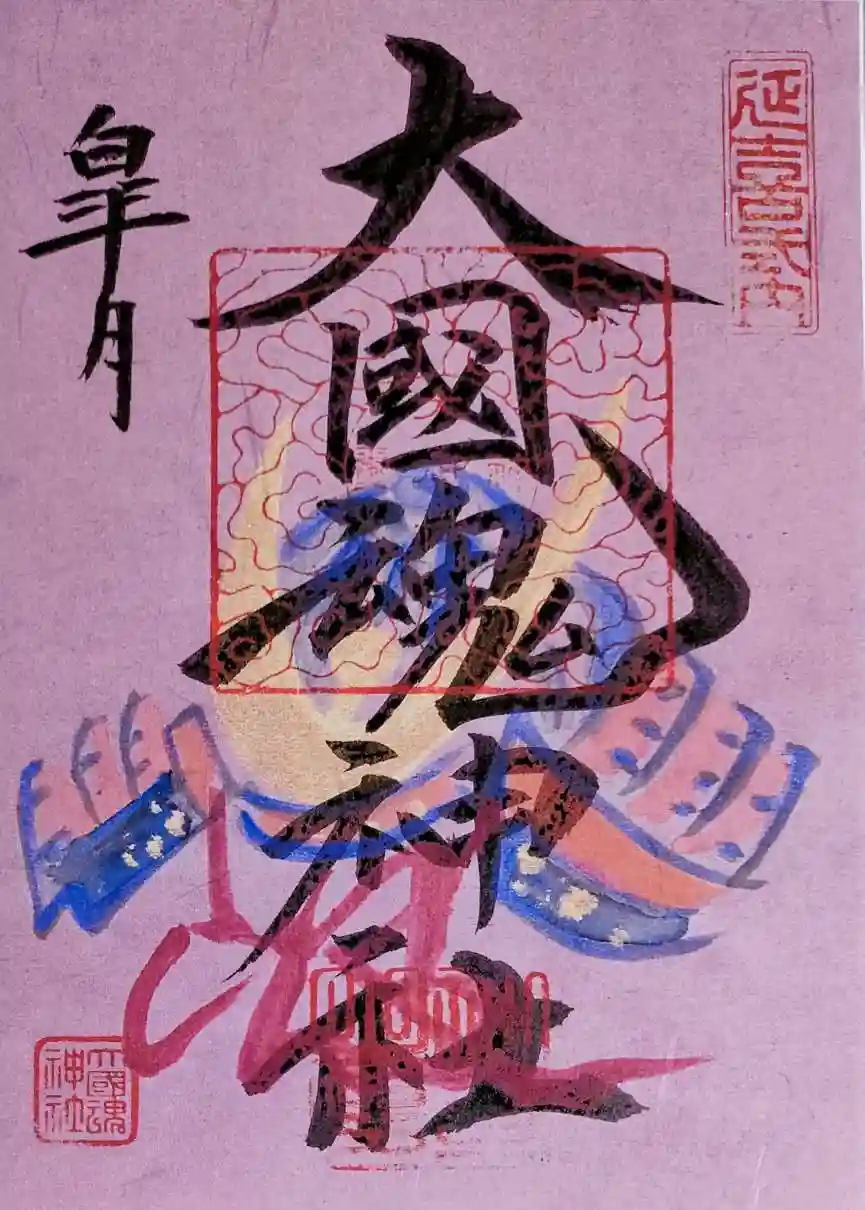 延喜式内
大國魂神社
皐月
大國魂
神社